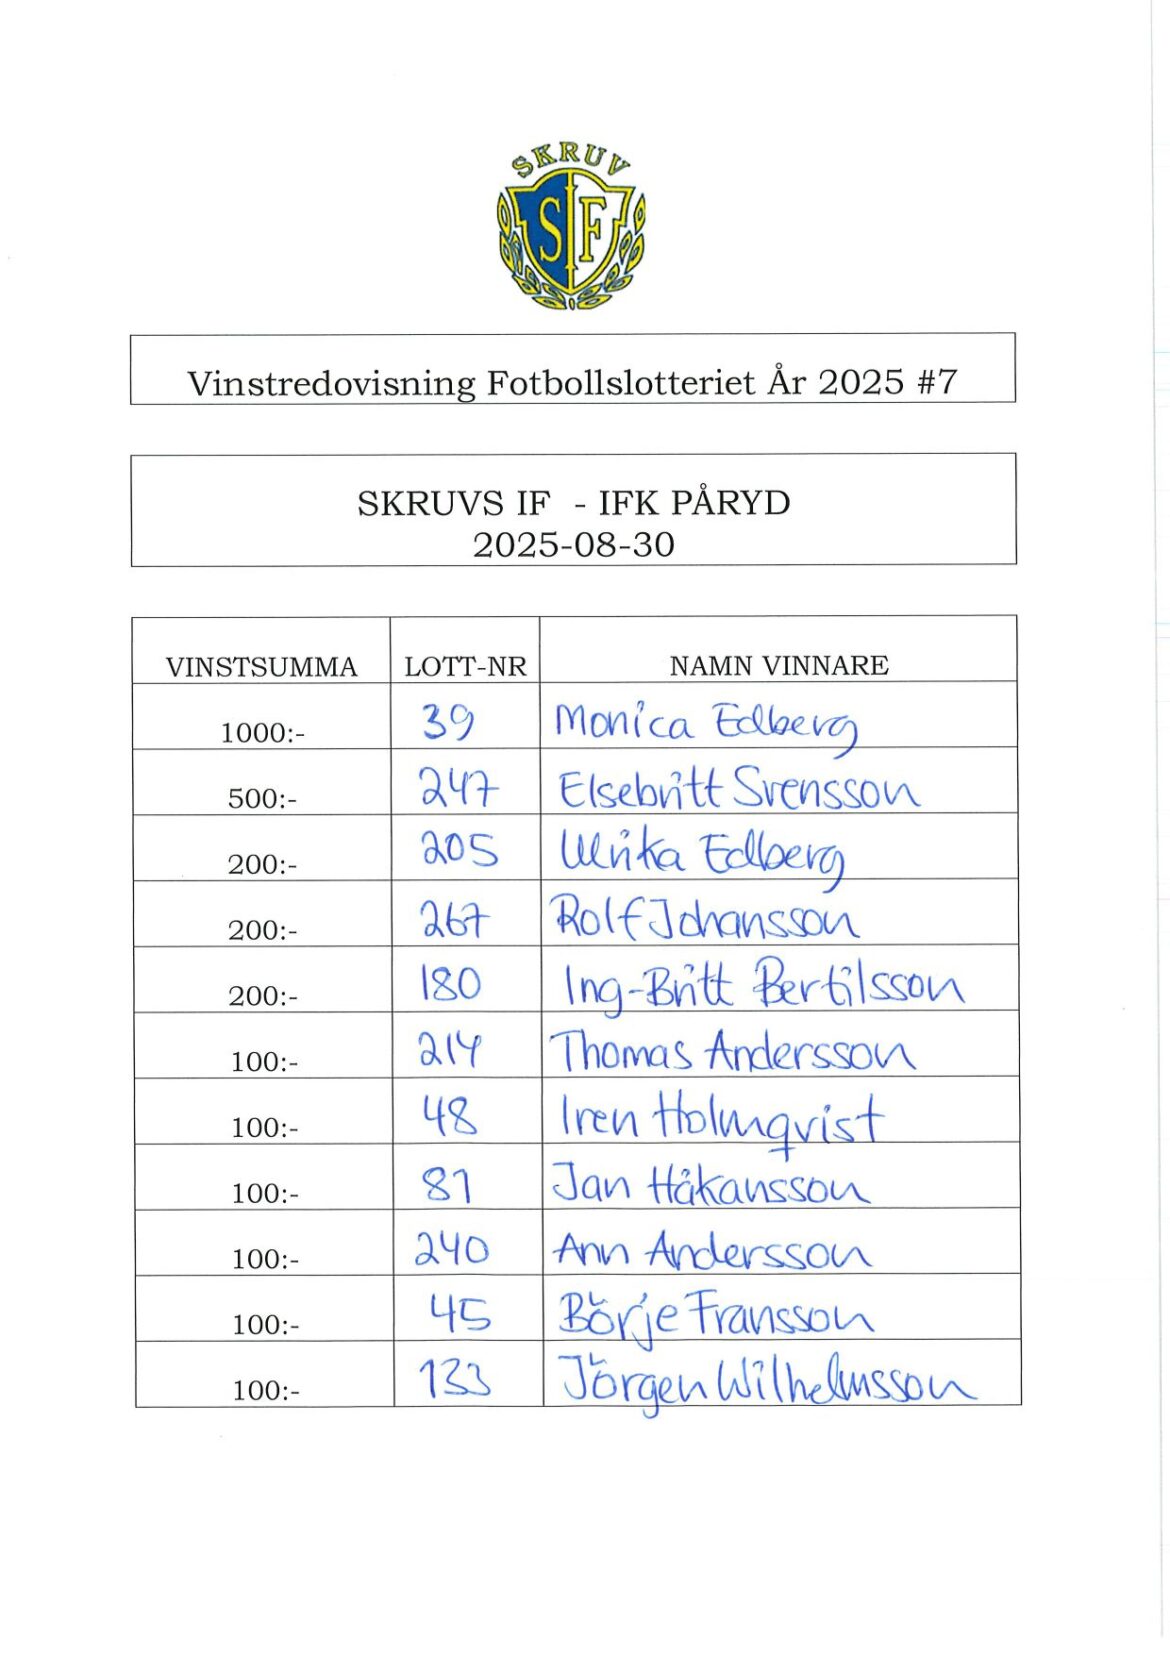 SKRUV
SIF
Vinstredovisning Fotbollslotteriet År 2025 #7
SKRUVS IF - IFK PÅRYD
2025-08-30
VINSTSUMMA LOTT-NR NAMN VINNARE
1000:- 39 Monica Edberg
500:- 247 Elsebritt Svensson
200:- 205 Ulrika Edberg
200:- 267 Rolf Johansson
200:- 180 Ing-Britt Bertilsson
100:- 214 Thomas Andersson
100:- 48 Iren Holmqvist
100:- 81 Jan Håkansson
100:- 240 Ann Andersson
100:- 45 Börje Fransson
100:- 133 Jörgen Wilhelmsson